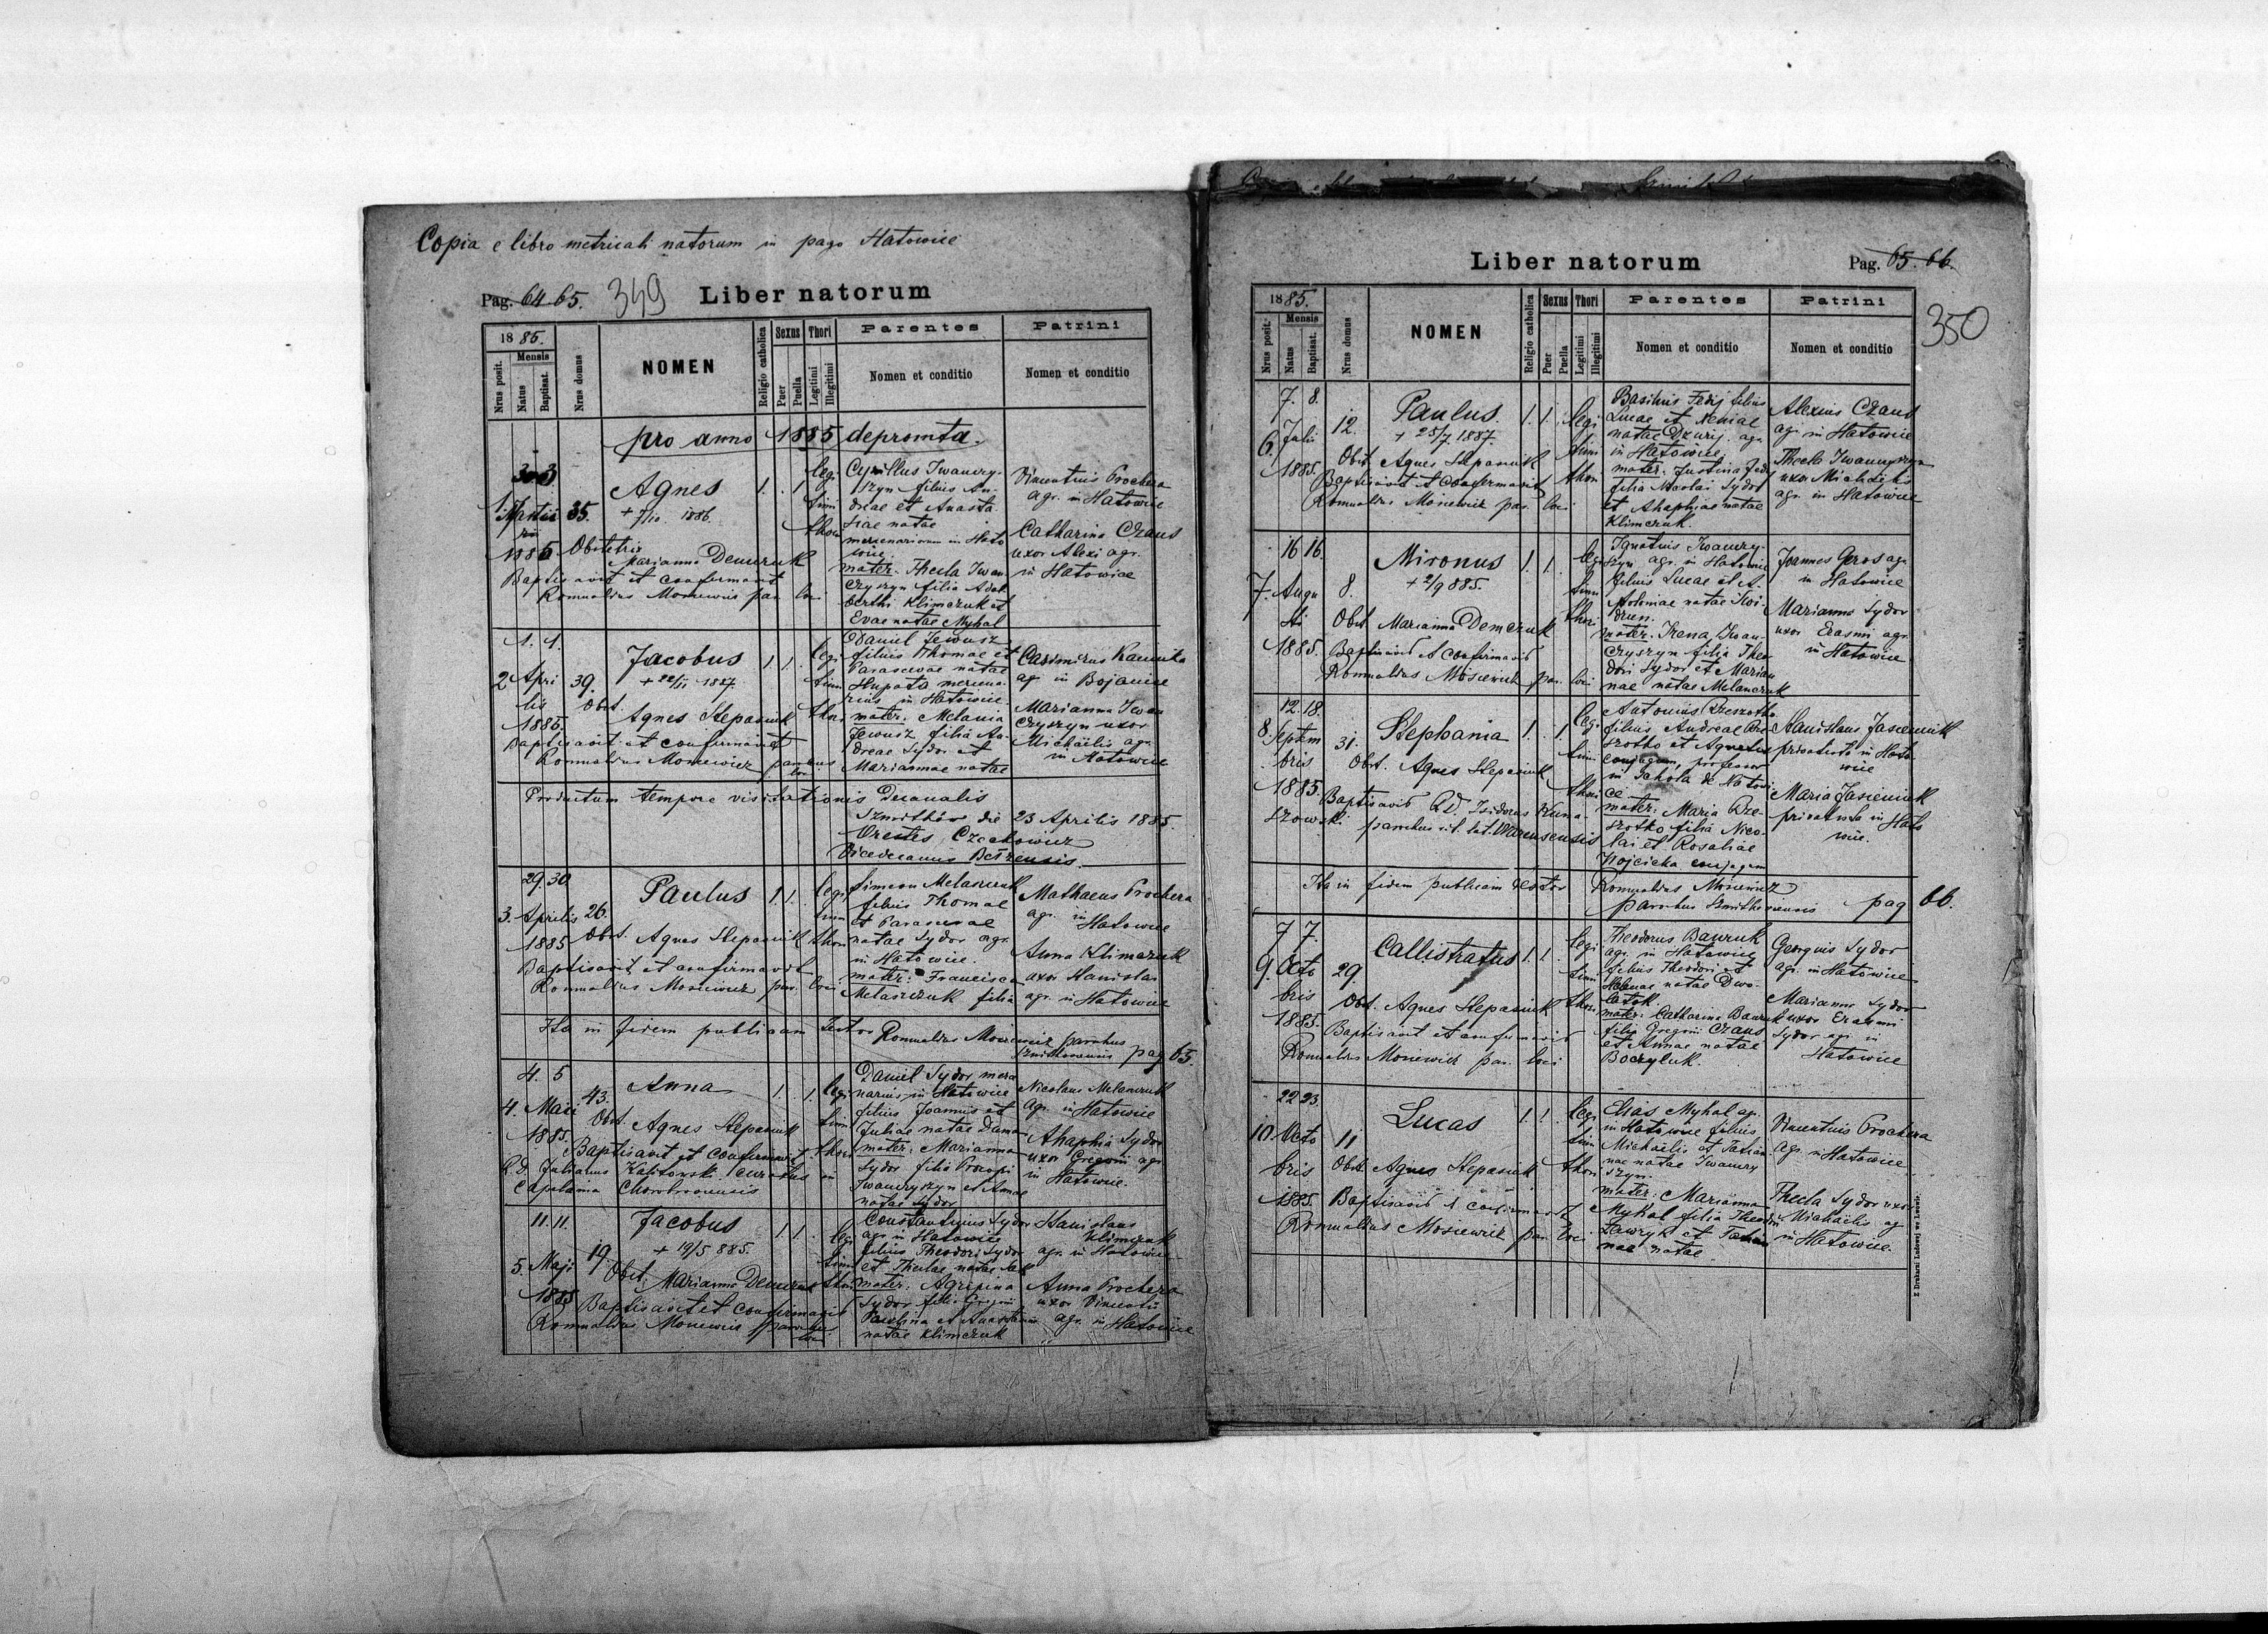 Copia e libro metricali natorum in pago Hatowice
Pag. 64 65. 349 Liber natorum
1885.
Nrus posit.
Mensis
Natus
Baptisat.
Nrus domus
NOMEN
Religio catholica
Sexus
Puer
Puella
Thori
Legitimi
Illegitimi
Parentes
Nomen et conditio
Patrini
Nomen et conditio
pro anno 1885 depromta.
1. Martii 35.
1885
Agnes
+ 7/10 1886.
Obstetrix
Marianna Demczuk
Baptisavit et confirmavit
Romualdus Mosiewicz par. loci
legi
timi
thori
Cyrillus Iwanczy-
szyn filius An-
dreae et Anasta-
siae natae
mercenariorum in Hato
wice.
mater: Thecla Iwan
czyszyn filia Adal
berthi Klimczuk et
Evae natae Mykal
Vincentius Prochera
agr. in Hatowice
Catharina Czaus
uxor Alexi agr.
in Hatowice
1. 1.
2 Apri
lis
1885.
39.
Jacobus
1887.
Obst.
Agnes Stepaniuk
Baptisavit et confirmavit
Romualdus Mosiewicz parochus
loci
legi
timi
thori
Daniel Jewusz
filius Thomae et
Parascevae natae
Hupata mercena
rius in Hatowice
mater: Melania
Jewusz filia An-
dreae Sydor et
Mariannae natae
Casimirus Kamita
ag. in Bojanice
Marianna Iwan
czyszyn uxor
Michaëlis agr.
in Hatowice
Productum tempore visitationis Decanalis
Szmitków die 23 Aprilis 1885.
Orestes Czechowicz
Vicedecanus Bełzensis.
29. 30.
3. Aprilis 26.
1885
Paulus
Obst. Agnes Stepaniuk
Baptisavit et confirmavit
Romualdus Mosiewicz par. loci
legi
timi
thori
Simeon Melanczuk
filius Thomae
et Parascevae
natae Sydor agr.
in Hatowice.
mater: Francisca
Melanczuk filia
Mathaeus Prochera
agr. in
Hatowice
Anna Klimczuk
uxor Stanislai
agr. in Hatowice
Ita in fidem publicam testor Romualdus Mosiewicz parochus
pag 65.
4. 5
4. Maii 43.
1885.
Anna
Obst.
Agnes Stepaniuk
Baptisavit et confirmavit
R.D. Julianus curatus in
Capelania
legi
timi
thori
Daniel Sydor merce
narius in Hatowice
filius Joannis et
Juliae natae Dama
mater: Marianna
Sydor filia Procopi
Iwanczyszyn et Annae
natae Sydor
Nicolaus Melanczuk
agr. in Hatowice
Ahaphia Sydor
uxor Gregorii agr.
in Hatowice.
11. 11.
5. Maji 19.
1885
Jacobus
+ 19/5 885.
Obst. Marianna Demczuk
Baptisavit et confirmavit
Romualdus Mosiewicz parochus
loci
legi
timi
thori
Constantinus Sydor
agr. in Hatowice
filius Theodori Sydor
et Theclae natae
mater: Agripina
Sydor filia Gregorii
et Anastasiae
natae Klimczuk
Stanislaus
Klimczuk
agr. in Hatowice
Anna Prochera
uxor Vincentii
agr. in Hatowice
Liber natorum Pag. 65. 66.
350
1885.
Nrus posit.
Mensis
Natus
Baptisat.
Nrus domus
NOMEN
Religio catholica
Sexus
Puer
Puella
Thori
Legitimi
Illegitimi
Parentes
Nomen et conditio
Patrini
Nomen et conditio
7. 8.
6. Julii 12.
1885.
Paulus.
+ 25/7 1887.
Obst. Agnes Stepaniuk
Baptisavit et confirmavit
Romualdus Mosiewicz par. loci
legi
timi
thori
Basilius Fedij filius
Lucae et Xeniae
natae Dzury. agr.
in Hatowice
mater: Justina Fedij
filia Nicolai Sydor
et Ahaphiae natae
Klimczuk.
Alexius Czaus
ag. in Hatowice
Thecla Iwanczyszyn
uxor Michaëlis
agr. in Hatowice
16 16.
7. Augu 8.
sti
1885.
Mironus
+ 2/9 885.
Obst. Marianna Demczuk
Baptisavit et confirmavit
Romualdus Mosiewicz par. loci
legi
timi
thori
Ignatius Iwanczy-
szyn agr. in Hatowice
filius Lucae et A-
poloniae natae
mater: Irena Iwan-
czyszyn filia Theo
dori Sydor et Marian
nae natae Melanczuk
Joannes Gros agr.
in Hatowice
Marianna Sydor
uxor Erasmi agr.
in Hatowice
12. 18.
8. Septem 31.
bris
1885.
Stephania
Obst. Agnes Stepaniuk
Baptisavit R.D. Isidorus
parochus r. l.
legi
timi
thori
Antonius Rzeszotko
filius Andreae Rze-
szotko et Agnetis
conjugum, professor
in schola de Hatowi
ce
mater: Maria Rze-
szotko filia Nico-
lai et Rosaliae
Wojcicka conjugum
Stanislaus Jasieniuk
privatista in Hato-
wice
Maria Jasieniuk
privatista in Hato
wice.
Ita in fidem publicam testor Romualdus Mosiewicz
parochus pag 66.
7 7.
9. Octo 29.
bris
1885.
Callistratus
Obst. Agnes Stepaniuk
Baptisavit et confirmavit
Romualdus Mosiewicz par. loci
legi
timi
thori
Theodorus Bawruk
agr. in Hatowice
filius Theodori et
Helenae natae
mater: Catharina Bawruk
filia Gregorii Czaus
et Annae natae
Boczyluk.
Georgius Sydor
agr. in Hatowice
Marianna Sydor
uxor Erasmi
Sydor agr. in
Hatowice
22 23
10. Octo 11
bris
1885.
Lucas
Obst. Agnes Stepaniuk
Baptisavit et confirmavit
Romualdus Mosiewicz par. loci
legi
timi
thori
Elias Mykal ag.
in Hatowice filius
Michaëlis et Tatian
nae natae Iwanczy
szyn.
mater: Marianna
Mykal filia Theodori
Ławryk et Tatian
nae natae
Vincentius Prochera
agr. in Hatowice
Thecla Sydor uxor
Michaëlis ag
in Hatowice.
Z Drukarni Ludowej we Lwowie.